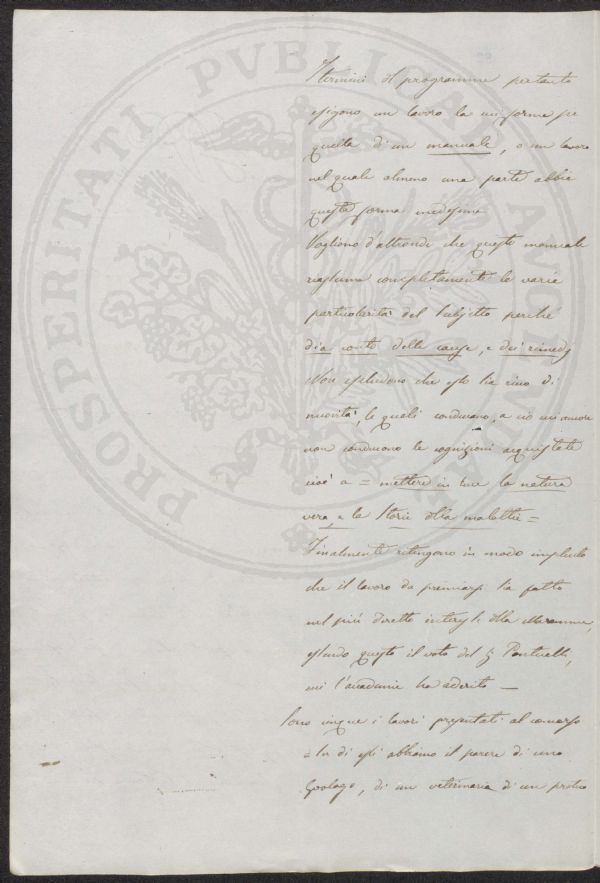 PROSPERITATI PVBLICAE AVGENDAE
I termini del programma pertanto
esigono un lavoro la cui forma
quella di un manuale, o un lavoro
nel quale almeno una parte abbia
questa forma medesima
Vogliono d'altronde che questo manuale
riassuma completamente le varie
particolarità del subjetto perché
dia conto delle cause, e dei rimedj
Non escludono che esso sia ricco di
novità, le quali conducano, a ciò cui ancora
non conducono le cognizioni acquistate
cioè a = mettere in luce la natura
vera, e la storia della malattia =
Finalmente ritengono in modo implicito
che il lavoro da premiarsi sia fatto
nel più diretto interesse della Maremma,
essendo questo il voto del
cui l'accademia ha aderito —
Sono cinque i lavori presentati al concorso
e su di essi abbiamo il parere di uno
Zoologo, di un veterinario di un pratico